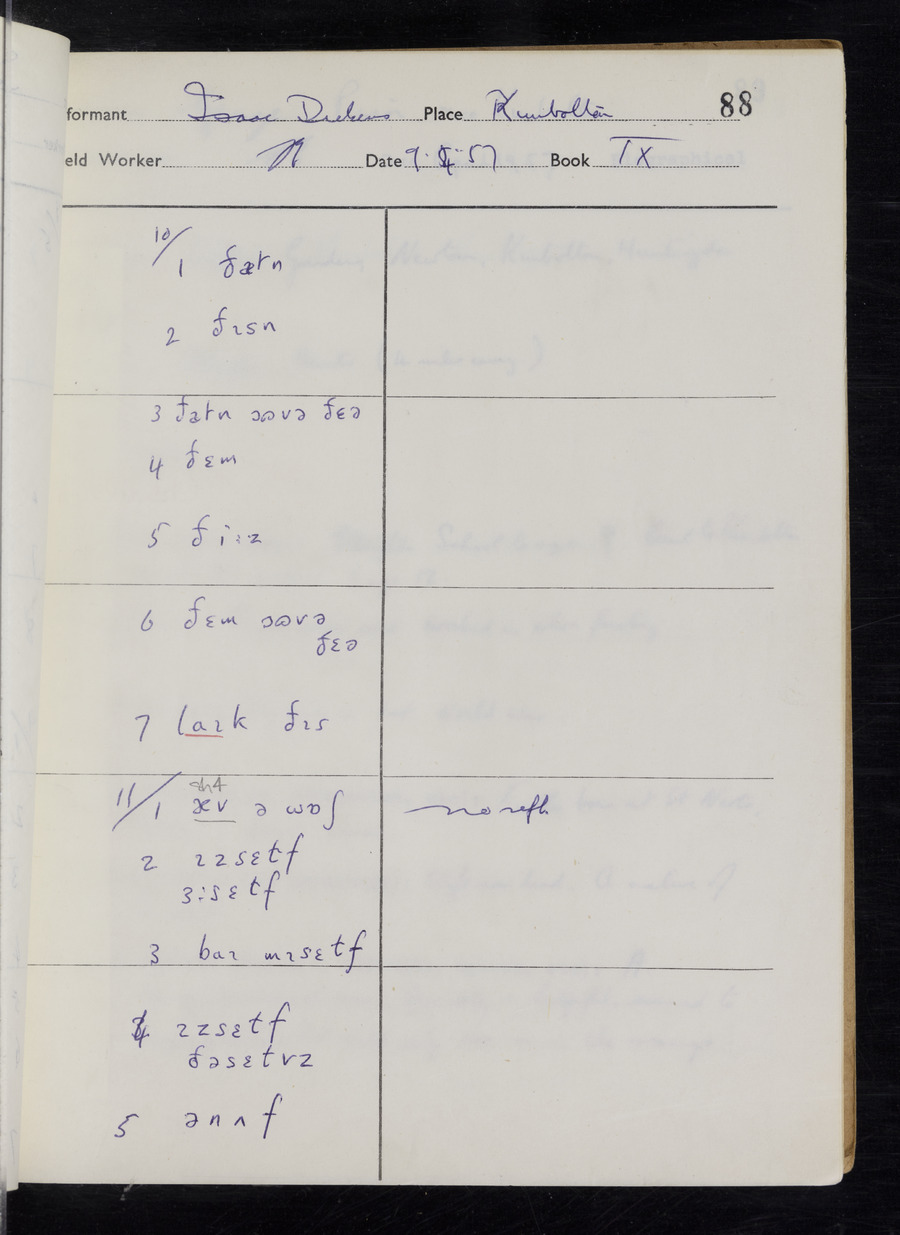 formant Isaac Dickens Place Kimbolton 88
eld Worker Date 9·4·57 Book IX
10/
1 ðætn
2 ðɪsn
3 ðatn ɔʊvə ðɛə
4 ðɛm
5 ði:z
6 ðɛm ɔʊvə
ðɛə
7 laɪk ðɪs
11/
1 æv ə wɒʃ no refl.
2 ɪzsɛtf
ɜ:sɛtf
3 baɪ mɪsɛtf
4 ɪzsɛtf
ðəsɛtvz
5 ənʌf